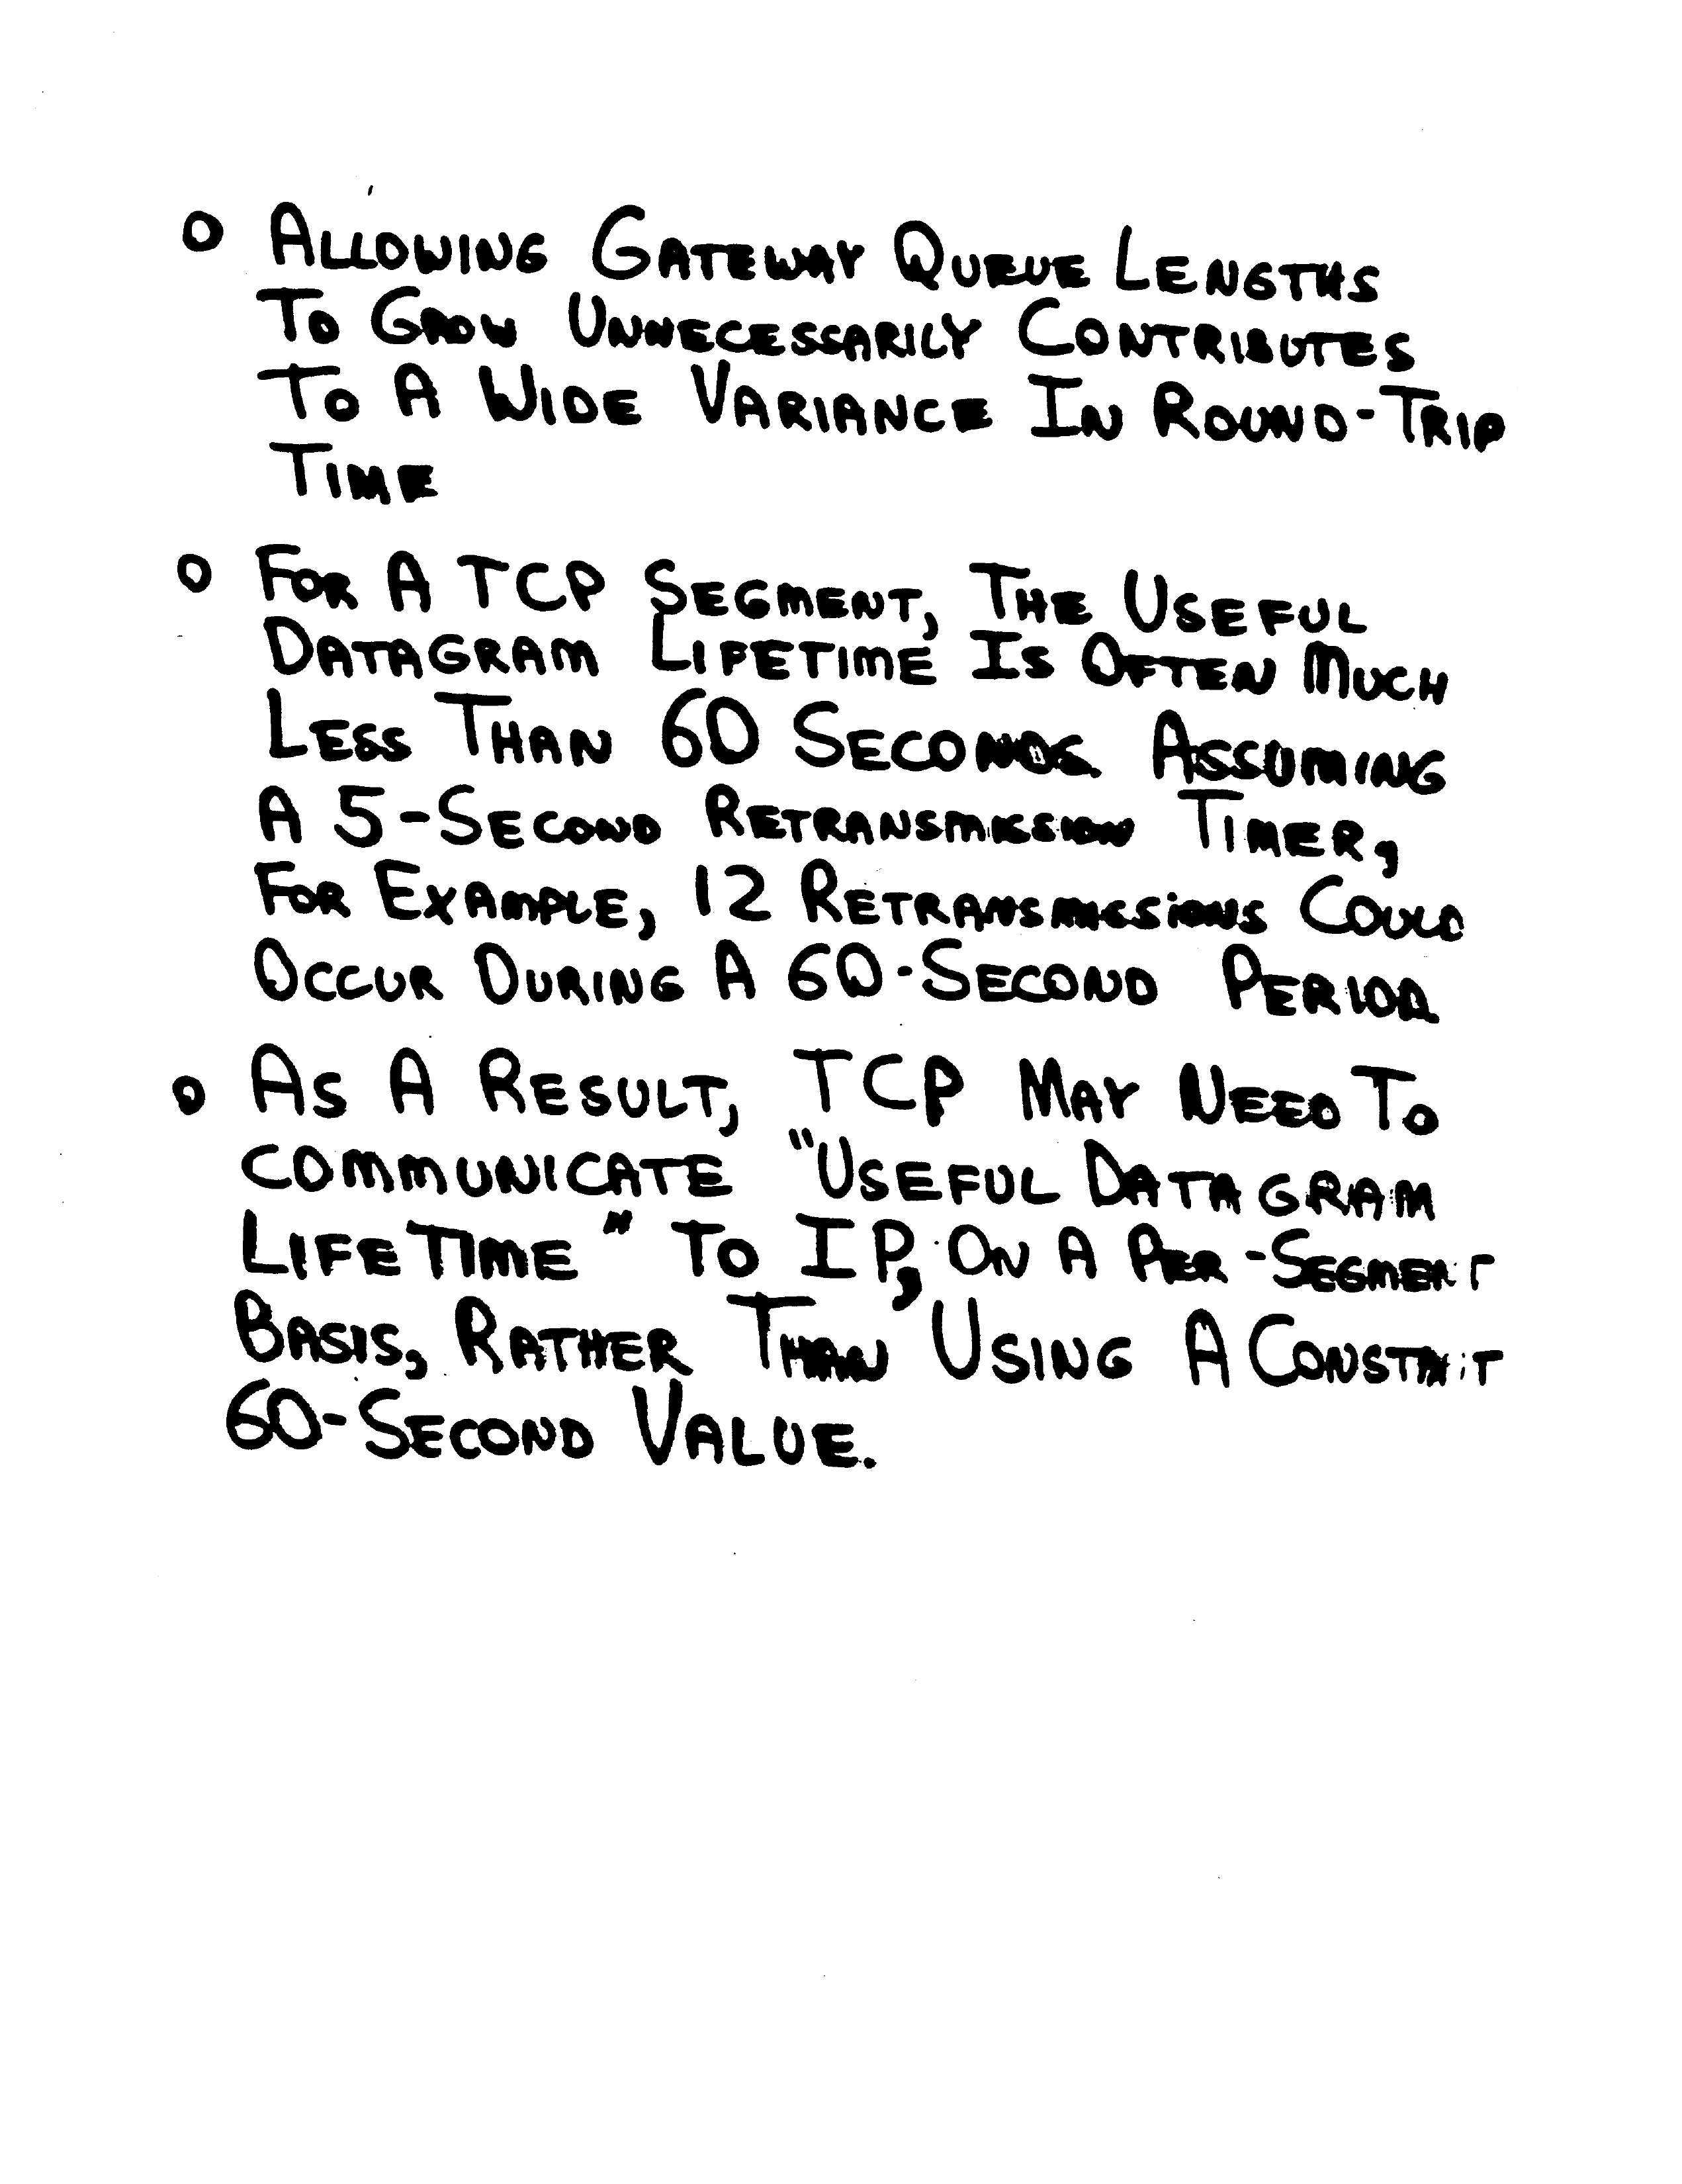 o ALLOWING GATEWAY QUEUE LENGTHS
TO GROW UNNECESSARILY CONTRIBUTES
TO A WIDE VARIANCE IN ROUND-TRIP
TIME
o FOR A TCP SEGMENT, THE USEFUL
DATAGRAM LIFETIME IS OFTEN MUCH
LESS THAN 60 SECONDS. ASSUMING
A 5-SECOND RETRANSMISSION TIMER,
FOR EXAMPLE, 12 RETRANSMISSIONS COULD
OCCUR DURING A 60-SECOND PERIOD.
o AS A RESULT, TCP MAY NEED TO
COMMUNICATE "USEFUL DATAGRAM
LIFETIME" TO IP, ON A PER-SEGMENT
BASIS, RATHER THAN USING A CONSTANT
60-SECOND VALUE.